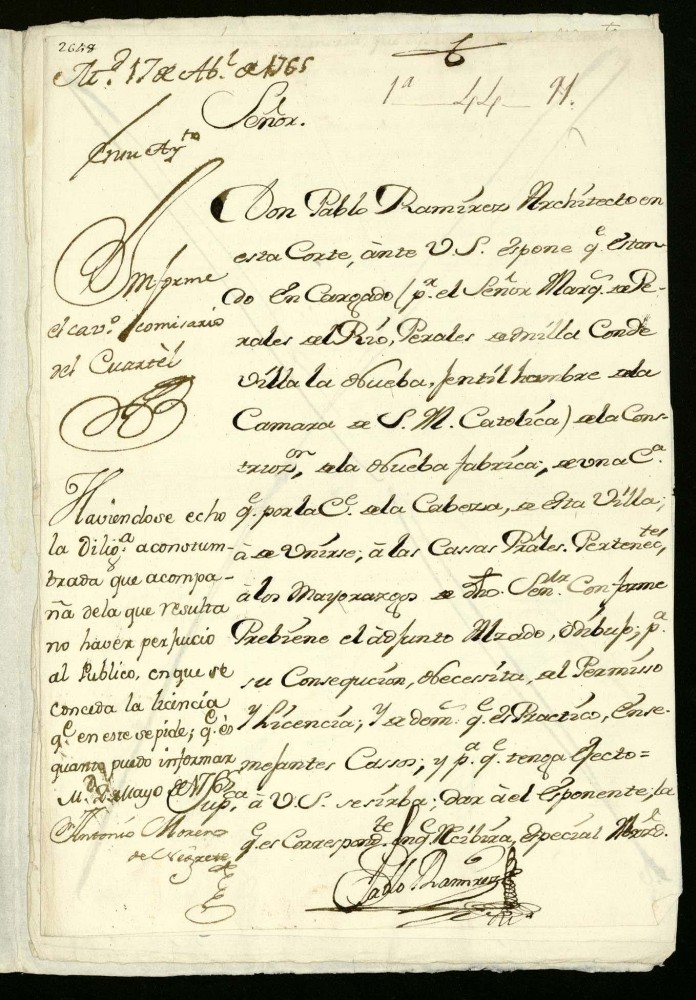 2648
M.d 17 de Ab.l de 1765
1a 44 11.
Señor.
En su Ay.to
Ynforme
el cav.o comisario
del Cuartèl
Haviendose echo
la Dilig.a acostum-
brada que acompa-
ña de la que resulta
no havér perjuicio
al Publico, en que se
conceda la licencia
q.e en este se pide; q.e es
quanto puedo informar
M.d 2 de Mayo de 1765
Antonio Moreno
de Negrete
Don Pablo Ramírez Architecto en
esta Corte, ànte V.S. espone q.e Estan-
do En Cargado (p.r el Señor Marq.s de Pe-
rales del Río, Perales de Milla Conde
Villa la Nueba, Jentil hombre de la
Camara de S. M. Catolíca) de la Cons-
truz.on, de la Nueba fabríca, de una C.a
q.e por la C.e de la Cabeza, de Esta Villa,
à de Unírse, à las Cassas Prâles. Pertenec.tes,
à los Mayorazgos de dho. Señ.or Conforme
Prebiene el àdjunto Alzado, ò dibujo; p.a
su Consegucíon, Necessíta, del Permisso
Y Licencia; Y de dem.s q.e es Practíco, En se-
mejantes Cassos; y p.a q.e tenga efecto=
Sup.ca à V.S. se sirba; dar à el Esponente, la
q.e es Correspond.te En q.e Recibíra, especial Mrzd.
Pablo Ramirez